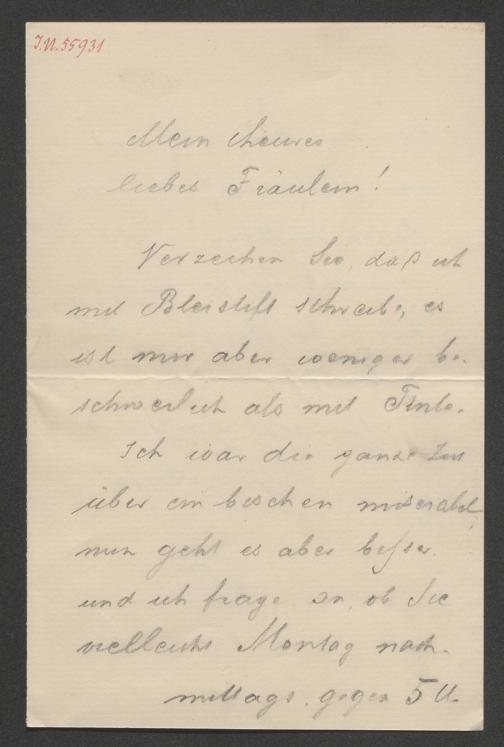 J.N. 55931
Mein theures
liebes Fräulein!
Verzeihen Sie, daß ich
mit Bleistift schreibe, es
ist mir aber weniger be-
schwerlich als mit Tinte.
Ich war die ganze Zeit
über ein bischen miserabel,
nun geht es aber besser
und ich frage an, ob Sie
vielleicht Montag nach-
mittags gegen 5 U